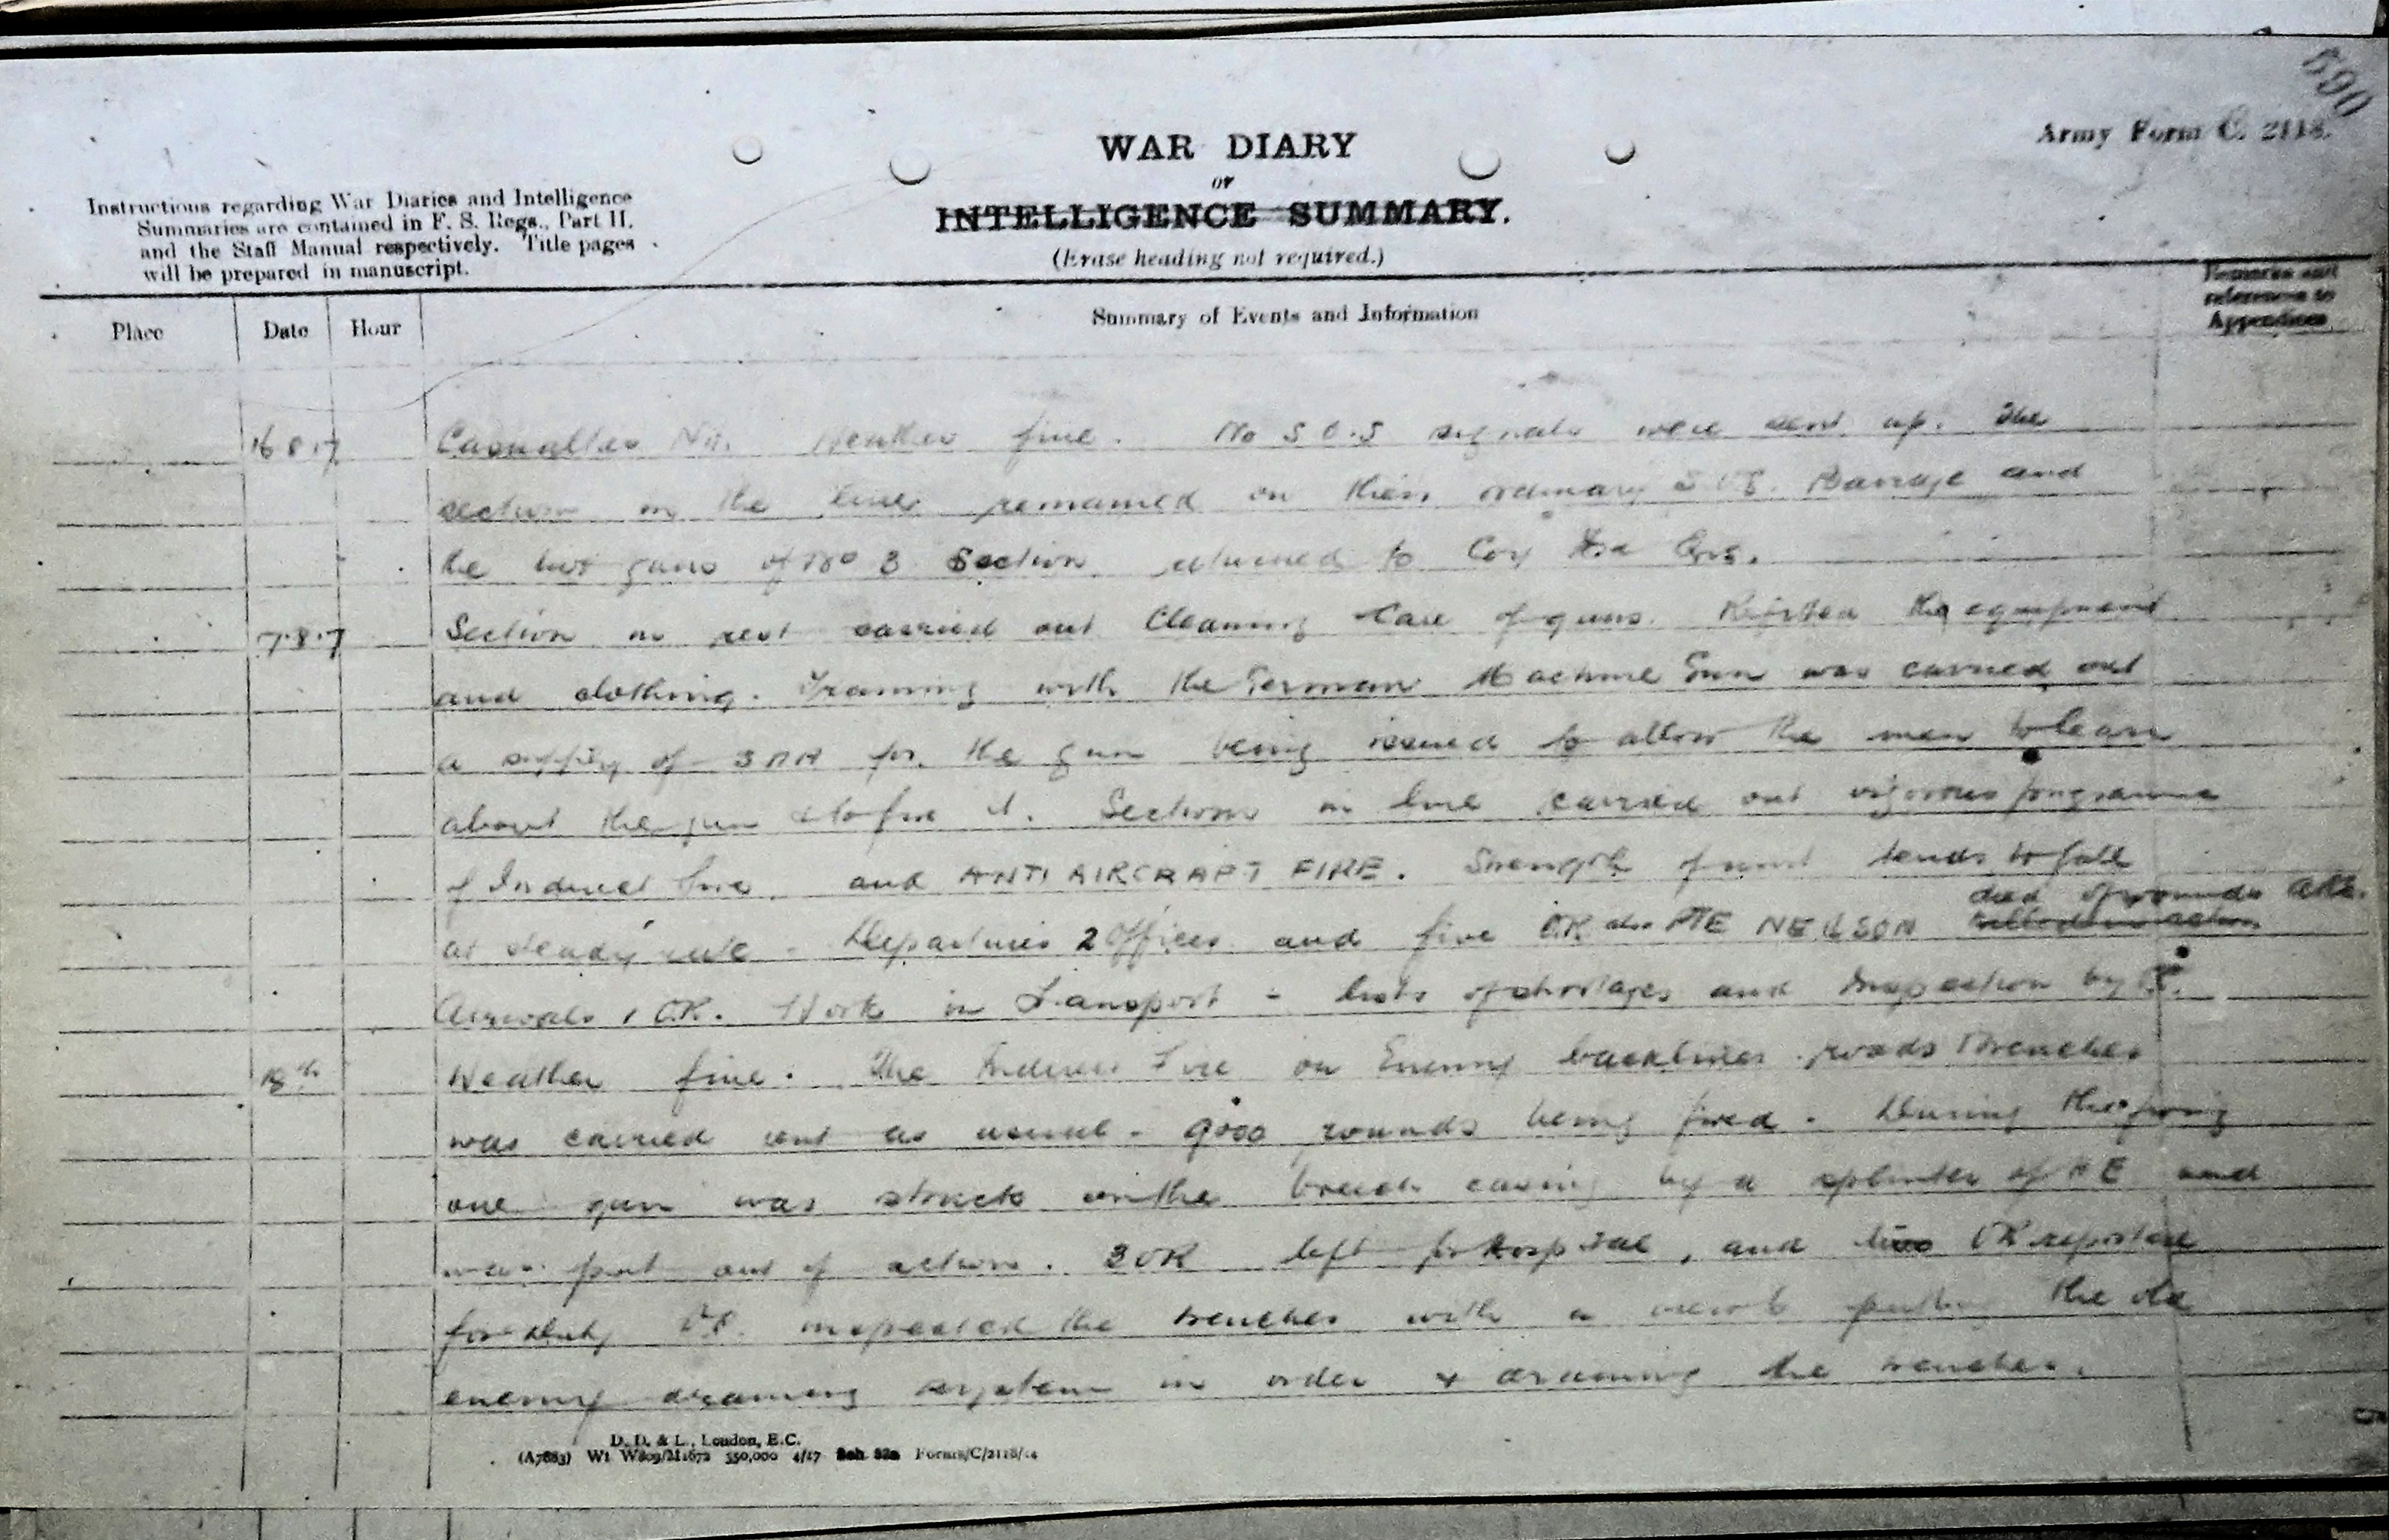 690
Army Form C. 2118.
WAR DIARY
or
INTELLIGENCE SUMMARY.
(Erase heading not required.)
Instructions regarding War Diaries and Intelligence
Summaries are contained in F. S. Regs., Part II.
and the Staff Manual respectively. Title pages
will be prepared in manuscript.
Place Date Hour Summary of Events and Information Remarks and
references to
Appendices
16 8 17 Casualties Nil. Weather fine. No S O.S signals were sent up. The
section in the line remained on their ordinary S O S. Barrage and
the two guns of No 3 Section returned to Coy Hd Qrs.
17.8.17 Section in rest carried out Cleaning & Care of guns. equipment
and clothing. Training with the German Machine Gun was carried out
a supply of SAA for the gun being issued to allow the men to learn
about the gun & to fire it. Sections in line carried out vigorous programme
of Indirect fire and ANTI AIRCRAFT FIRE. Strength of unit tends to fall
at steady rate - Departures 2 Officers and five OR also PTE NEILSON killed in action died of wounds
Arrivals 1 OR. Work in Transport - lists of shortages and Inspection by
18th Weather fine. The Indirect Fire on Enemy back lines roads & trenches
was carried out as usual - 9000 rounds being fired. During the firing
one gun was struck on the breech casing by a splinter of HE and
was put out of action. 3 OR left for hospital, and two OR reported
for duty OC. inspected the trenches with a view to putting the old
enemy draining system in order & draining the trenches.
D. D. & L., London, E.C.
(A7883) Wt W809/M1672 350,000 4/17 Sch. 52a Forms/C/2118/14